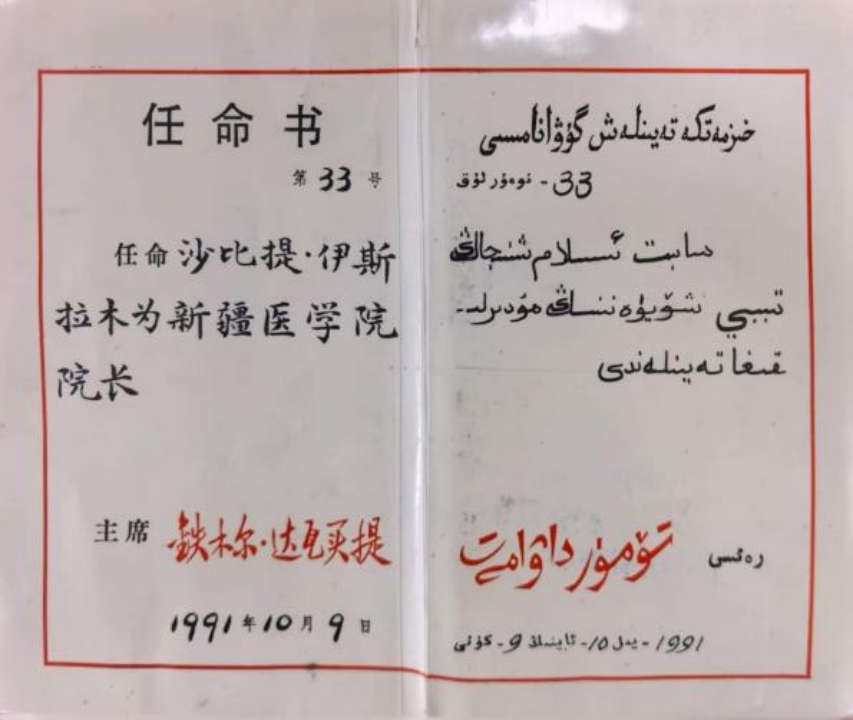 任命书
第 33 号
任命沙比提·伊斯
拉木为新疆医学院
院长
主席 铁木尔·达瓦买提
1991年10月9日
خىزمەتكە تەيىنلەش گۇۋانامىسى
33- نومۇرلۇق
سابىت ئىسلام شىنجاڭ
تىببىي ئىنىستىتۇتىنىڭ
قىغا تەيىنلەندى
رەئىسى تۆمۈر داۋامەت
1991- يىل 10- ئاينىڭ 9- كۈنى